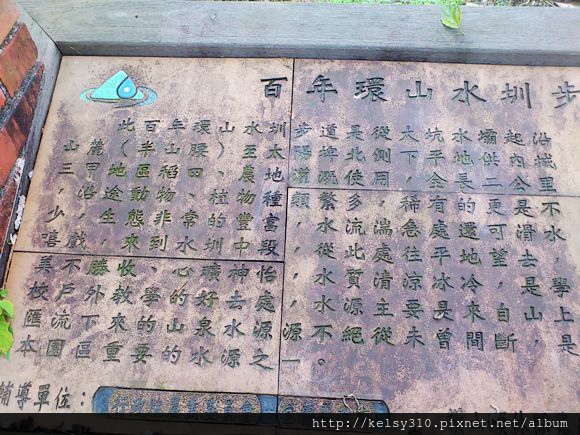 百年環山水圳步
此（百年環山）水圳步道是從太坑水壩起沿
山麓半山腰至太陽埤北側下平地供內城
三甲地稻田、農地灌溉使用，全長二公里
，沿途區動植物種類繁多，稀有的更是不
少，生態非常豐富，水流湍急處還可滑水，
嘻戲，來到水圳中段，從此處往平地望去，
美不勝收、心曠神怡，水質清涼冰冷是學
校戶外教學的好去處，水源主要是來自山上
匯流下來的山泉水源源不絕從未曾間斷，是
本園區重要的水源之一。
輔導單位：
http://kelsy310.pixnet.net/album